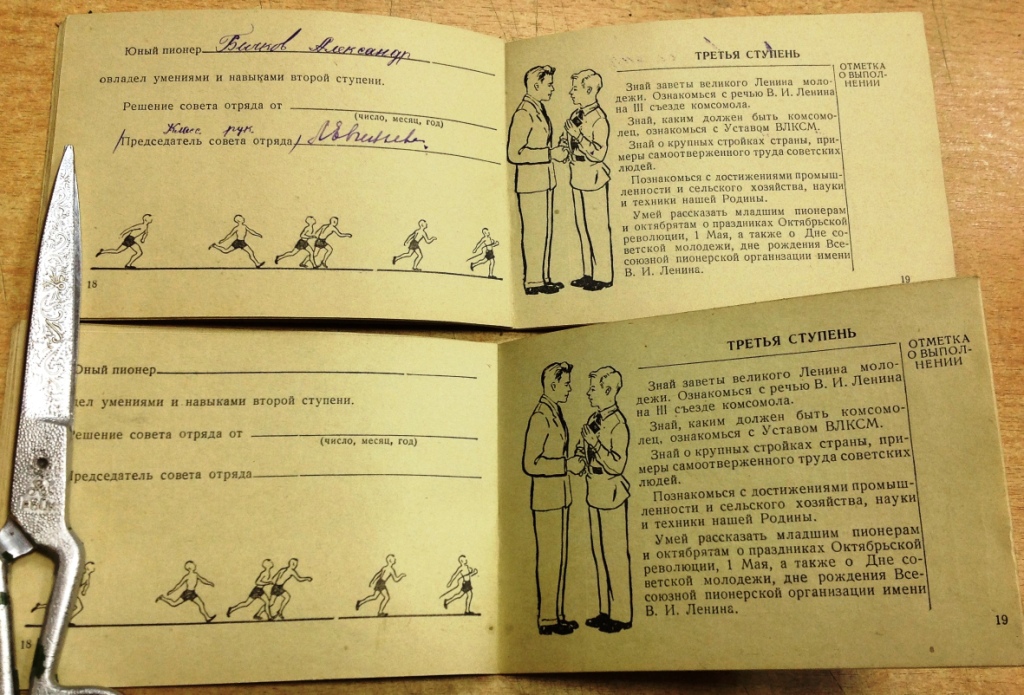 Юный пионер Бычков Александр
овладел умениями и навыками второй ступени.
Решение совета отряда от
(число, месяц, год)
Класс. рук.
(Председатель совета отряда)
18
ТРЕТЬЯ СТУПЕНЬ
ОТМЕТКА
О ВЫПОЛ-
НЕНИИ
Знай заветы великого Ленина моло-
дежи. Ознакомься с речью В. И. Ленина
на III съезде комсомола.
Знай, каким должен быть комсомо-
лец, ознакомься с Уставом ВЛКСМ.
Знай о крупных стройках страны, при-
меры самоотверженного труда советских
людей.
Познакомься с достижениями промыш-
ленности и сельского хозяйства, науки
и техники нашей Родины.
Умей рассказать младшим пионерам
и октябрятам о праздниках Октябрьской
революции, 1 Мая, а также о Дне со-
ветской молодежи, дне рождения Все-
союзной пионерской организации имени
В. И. Ленина.
19
Юный пионер
дел умениями и навыками второй ступени.
Решение совета отряда от
(число, месяц, год)
Председатель совета отряда
18
ТРЕТЬЯ СТУПЕНЬ
ОТМЕТКА
О ВЫПОЛ-
НЕНИИ
Знай заветы великого Ленина моло-
дежи. Ознакомься с речью В. И. Ленина
на III съезде комсомола.
Знай, каким должен быть комсомо-
лец, ознакомься с Уставом ВЛКСМ.
Знай о крупных стройках страны, при-
меры самоотверженного труда советских
людей.
Познакомься с достижениями промыш-
ленности и сельского хозяйства, науки
и техники нашей Родины.
Умей рассказать младшим пионерам
и октябрятам о праздниках Октябрьской
революции, 1 Мая, а также о Дне со-
ветской молодежи, дне рождения Все-
союзной пионерской организации имени
В. И. Ленина.
19